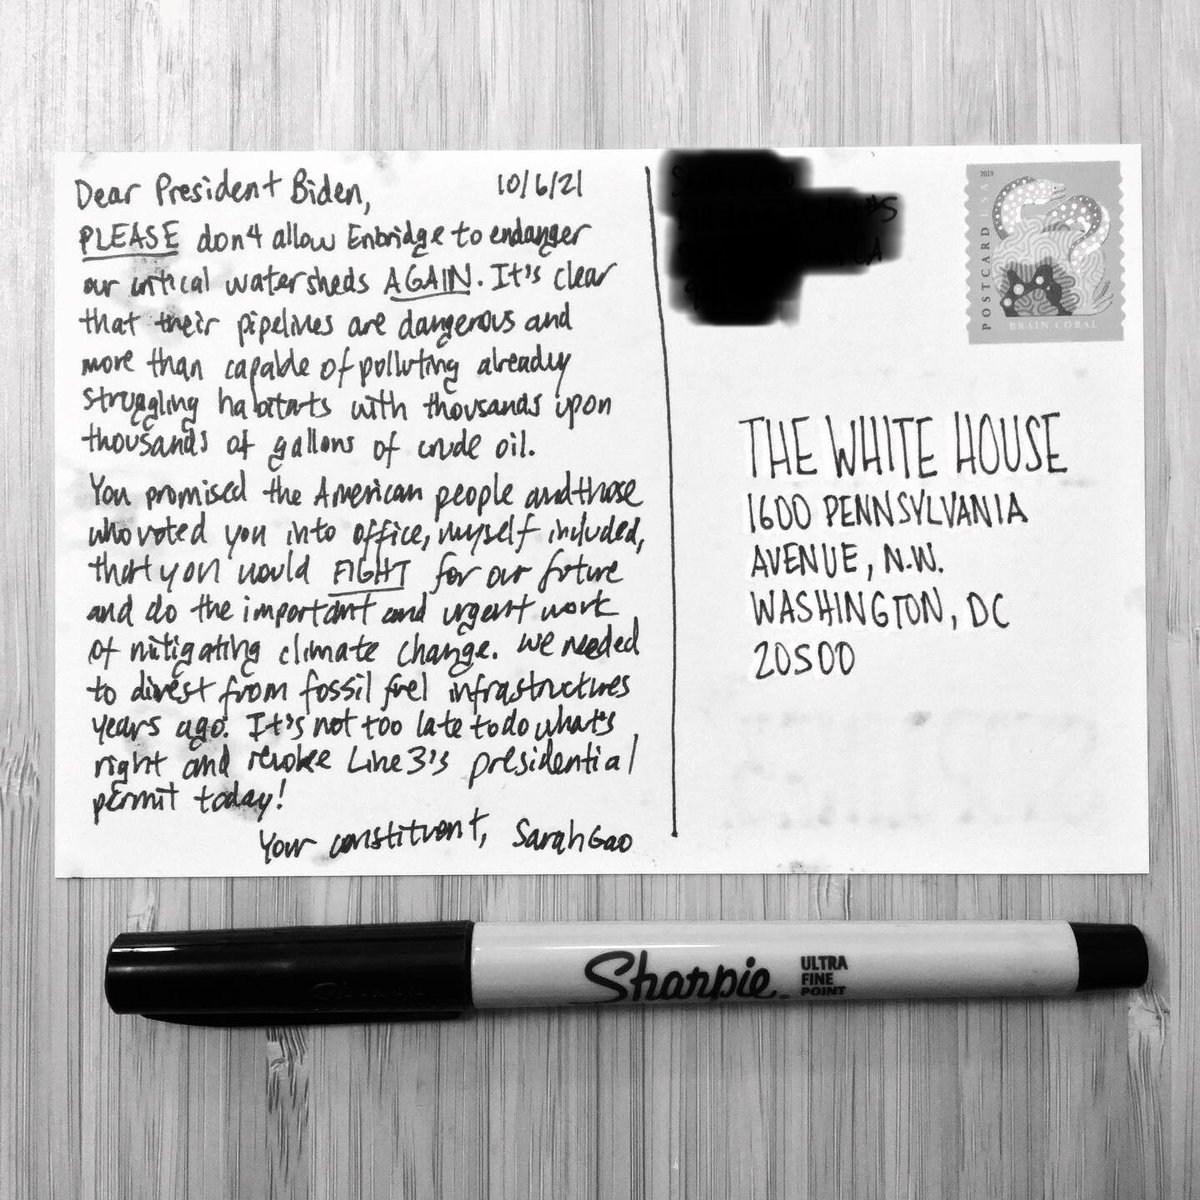 Dear President Biden, 10/6/21
PLEASE don't allow Enbridge to endanger
our critical watersheds AGAIN. It's clear
that their pipelines are dangerous and
more than capable of polluting already
struggling habitats with thousands upon
thousands of gallons of crude oil.
You promised the American people and those
who voted you into office, myself included,
that you would FIGHT for our future
and do the important and urgent work
of mitigating climate change. We needed
to divest from fossil fuel infrastructures
years ago. It's not too late to do what's
right and revoke Line 3's presidential
permit today!
Your constituent, Sarah Gao
2019
POSTCARD USA
BRAIN CORAL
THE WHITE HOUSE
1600 PENNSYLVANIA
AVENUE, N.W.
WASHINGTON, DC
20500
Sharpie
ULTRA
FINE
POINT